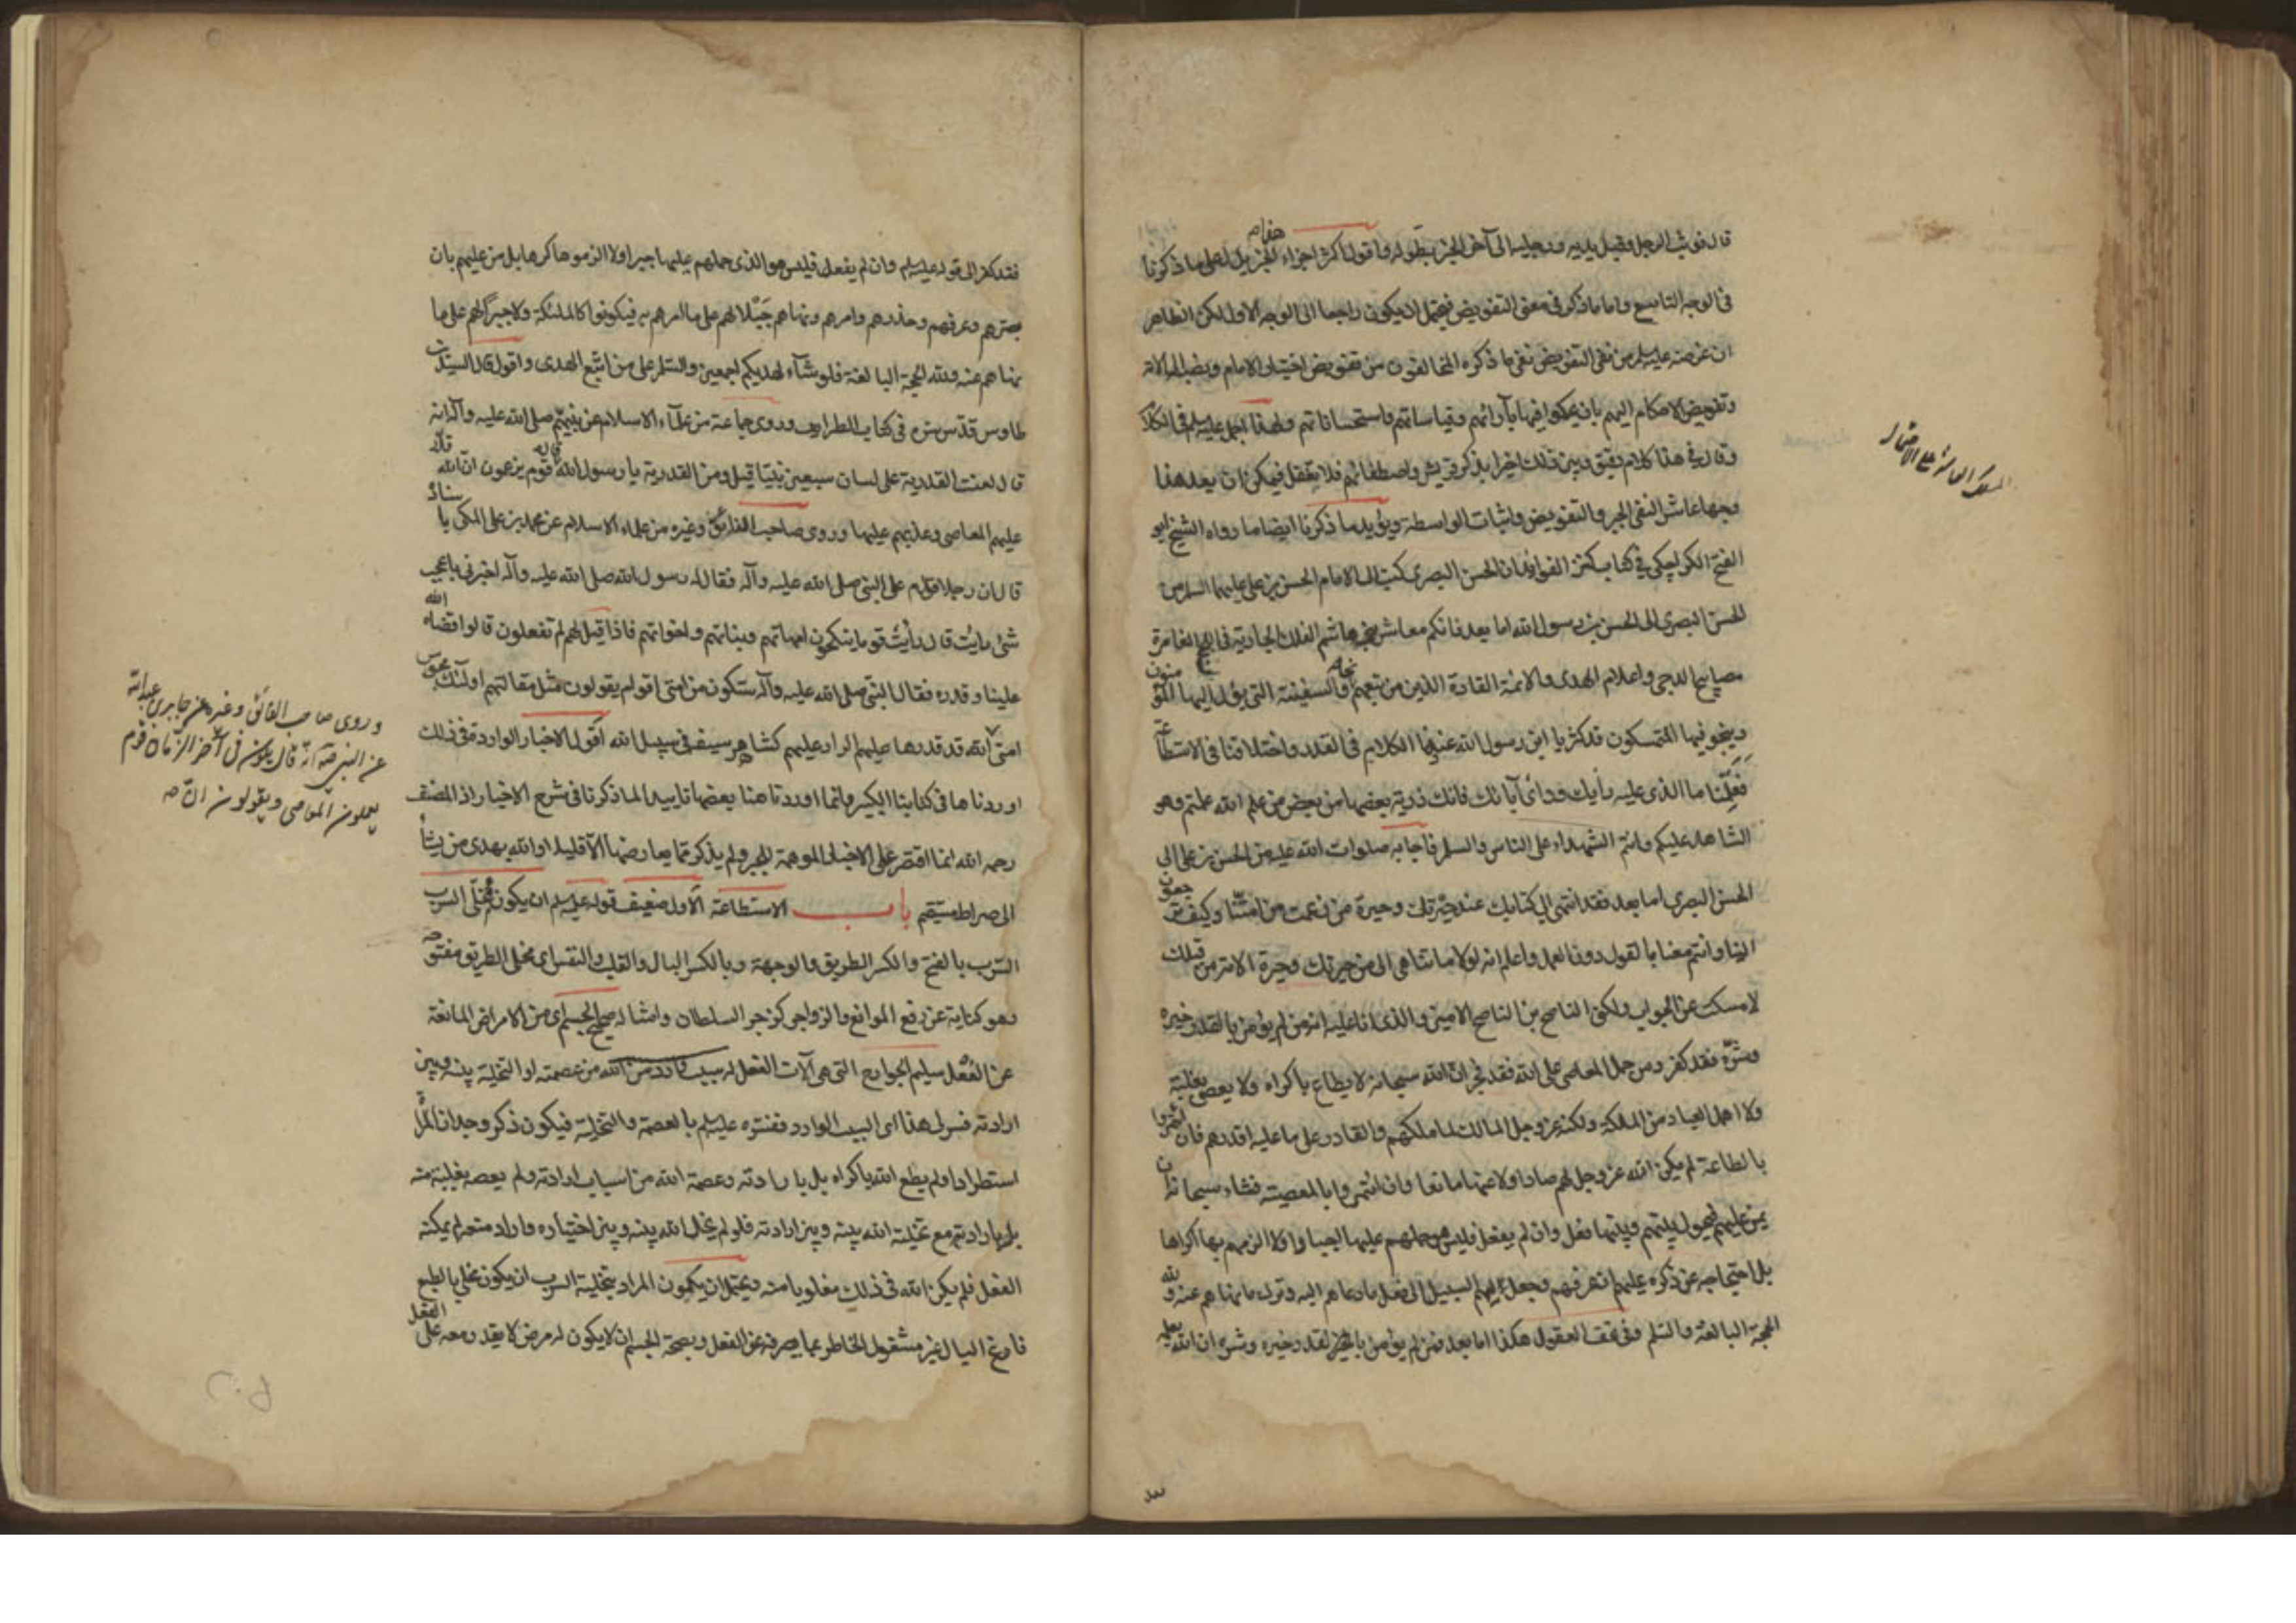 قال فوثب الرجل وقبل يديه ورجليه الى آخر الخبر بطوله واقول اكثر اجزاء الخبر يدل على ما ذكرنا
في الوجه التاسع واما ما ذكر في معنى التفويض فيحتمل ان يكون راجعا الى الوجه الاول لكن الظاهر
ان غرضه عليه السلم من نفي التفويض نفي ما ذكره المخالفون من تفويض اختيار الامام ونصبه الى الامة
وتفويض الاحكام اليهم بان يحكموا فيها بآرائهم وقياساتهم واستحساناتهم ولهذا اجمل عليه السلم في الكلام
وقال في هذا كلام دقيق وبين ذلك اخيرا بذكر قريش واصطفائهم فلا تغفل فيمكن ان يعد هذا
وجها عاشرا لنفي الجبر والتفويض واثبات الواسطة ويؤيد ما ذكرنا ايضا ما رواه الشيخ ابو
الفتح الكراجكي في كتاب كنز الفوائد ان الحسن البصري كتب الى الامام الحسن بن علي عليهما السلام من
الحسن البصري الى الحسن بن رسول الله اما بعد فانكم معاشر بني هاشم الفلك الجارية في اللجج الغامرة
مصابيح الدجى واعلام الهدى والائمة القادة الذين من تبعهم نجا والسفينة التي يؤل اليها المؤمنون
وينجو فيها المتمسكون قد كثر يا ابن رسول الله عندنا الكلام في القدر واختلافنا في الاستطاعة
فعلمنا ما الذي عليه رأيك ورأى آبائك فانك ذرية بعضها من بعض من علم الله علمتم وهو
الشاهد عليكم وانتم الشهداء على الناس والسلم فاجابه صلوات الله عليه من الحسن بن علي الى
الحسن البصري اما بعد فقد انتهى الي كتابك عند حيرتك وحيرة من زعمت من امتنا وكيف ترجعون
الينا وانتم معنا بالقول دون العمل واعلم انه لولا ما تناهى الي من حيرتك وحيرة الامة من قبلك
لامسكت عن الجواب ولكني الناصح بن الناصح الامين والذي انا عليه انه من لم يؤمن بالقدر خيره
وشره فقد كفر ومن حمل المعاصي على الله فقد فجر ان الله سبحانه لا يطاع باكراه ولا يعصى بغلبة
ولا اهمل العباد من المملكة ولكنه عز وجل المالك لما ملكهم والقادر على ما عليه اقدرهم فان ائتمروا
بالطاعة لم يكن الله عز وجل لهم صادا ولا عنها مانعا وان ائتمروا بالمعصية فشاء سبحانه ان
يمن عليهم فيحول بينهم وبينها فعل وان لم يفعل فليس هو حملهم عليها اجبارا ولا الزمهم بها اكراها
بل احتجاجه عز ذكره عليهم ان عرفهم وجعل لهم السبيل الى فعل ما دعاهم اليه وترك ما نهاهم عنه ولله
الحجة البالغة والسلم وفي تحف العقول هكذا اما بعد فمن لم يؤمن بالقدر خيره وشره ان الله يعلمه
المسلك العاشر على الاختصار
فقد كفر الى قوله عليه السلم وان لم يفعل فليس هو الذي حملهم عليها جبرا ولا الزموها كرها بل من عليهم بان
بصرهم وعرفهم وحذرهم وامرهم ونهاهم جبلا لهم على ما امرهم به فيكونوا كالملئكة ولا جبرا لهم على ما
نهاهم عنه ولله الحجة البالغة فلو شآء لهديكم اجمعين والسلم على من اتبع الهدى واقول قال السيد بن
طاوس قدس سره في كتاب الطرايف وروى جماعة من علمآء الاسلام عن نبيهم صلى الله عليه وآله انه
قال لعنت القدرية على لسان سبعين نبيا قيل ومن القدرية يا رسول الله قال قوم يزعمون ان الله قدر
عليهم المعاصي وعذبهم عليها وروى صاحب الفائق وغيره من علماء الاسلام عن محمد بن علي المكي باسناده
قال ان رجلا قدم على النبي صلى الله عليه وآله فقال له رسول الله صلى الله عليه وآله اخبرني باعجب
شئ رايت قال رأيت قوما ينكحون امهاتهم وبناتهم واخواتهم فاذا قيل لهم لم تفعلون قالوا قضاه الله
علينا وقدره فقال النبي صلى الله عليه وآله ستكون من امتي اقوام يقولون مثل مقالتهم اولئك مجوس
امتي الله قد قدرها عليهم الراد عليهم كشاهر سيفه في سبيل الله اقول الاخبار الواردة في ذلك
اوردناها في كتابنا الكبير وانما اوردنا هنا بعضها تاييدا لما ذكرنا في شرح الاخبار اذ المصنف
رحمه الله انما اقتصر على الاخبار الموهمة للجبر ولم يذكر مما يعارضها الا قليلا والله يهدي من يشآء
الى صراط مستقيم باب الاستطاعة الاول ضعيف قوله عليه السلم ان يكون مخلى السرب
السرب بالفتح والكسر الطريق والوجهة وبالكسر البال والقلب والنفس اي مخلى الطريق مفتوحه
وهو كناية عن رفع الموانع والزواجر كزجر السلطان وامثاله صحيح الجسم اي من الامراض المانعة
عن الفعل سليم الجوارح التي هي آلات الفعل له سبب وارد من الله من عصمته او التخلية بينه وبين
ارادته فسر لي هذا اي السبب الوارد ففسره عليه السلم بالعصمة والتخلية فيكون ذكر وجدان المرأة
استطرادا ولم يطع الله باكراه بل بارادته وعصمة الله من اسباب ارادته ولم يعصه بغلبة منه
بل بارادته مع تخلية الله بينه وبين ارادته فلو لم يخل الله بينه وبين اختياره واراد منعه لم يمكنه
الفعل فلم يكن الله في ذلك مغلوبا منه ويحتمل ان يكون المراد بتخلية السرب ان يكون مخلى بالطبع
فارغ البال غير مشغول الخاطر عما يصرفه عن الفعل وبصحة الجسم ان لا يكون له مرض لا يقدر معه على الفعل
وروى صاحب الفائق وغيره عن جابر بن عبدالله
عن النبي ص انه قال يكون في آخر الزمان قوم
يعملون المعاصي ويقولون ان